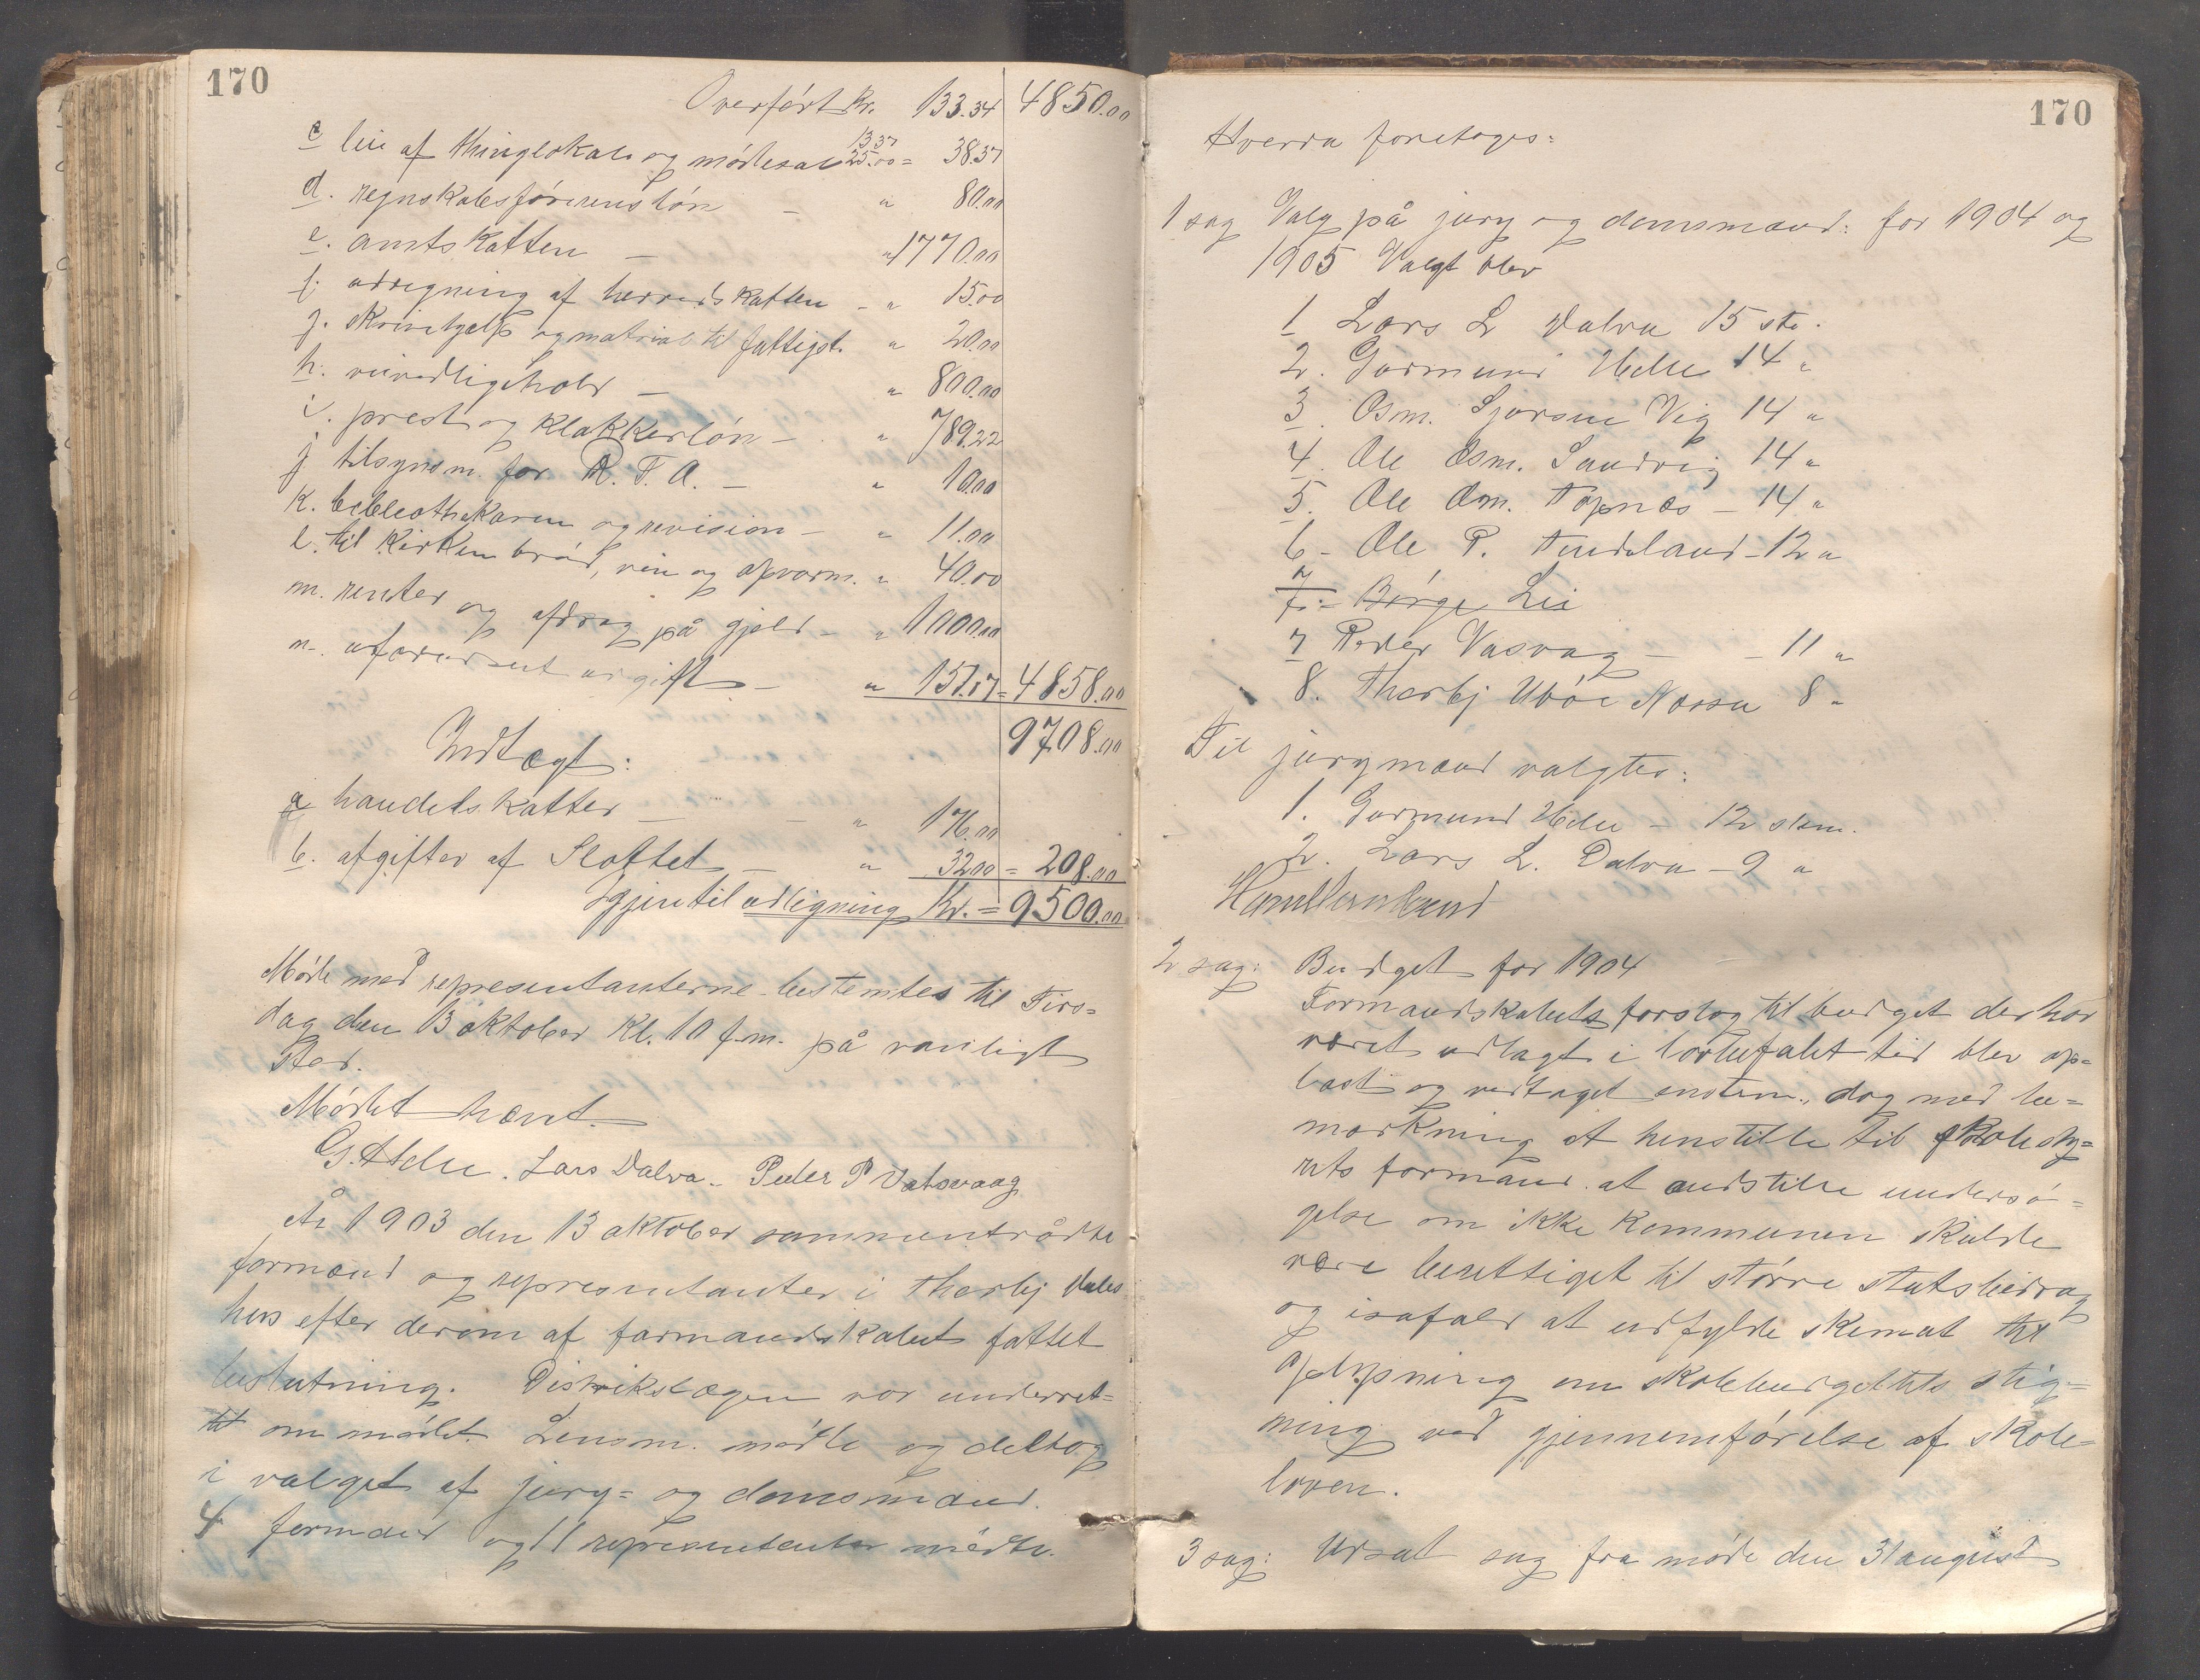 170
Overført Kr. 133.34 4850.00
c leie af thinglokale og mødesal 13.37 25.00 = 38.37
d. regnskabsførerens løn — " 80.00
e. amtskatten — " 1770.00
f. udregning af herredskatten — " 15.00
g. skrivehjelp og matrial til fattigst. " 20.00
h. veivedligehold — " 800.00
i. prest og klokkerløn — " 789.22
j tilsynsm. for R. T. A. — " 10.00
k. bibliothekaren og revision — " 11.00
l. til kirken brød, vin og opvarm. " 40.00
m. renter og afdrag på gjeld — " 1000.00
n. uforudseet udgift — " 151.07 = 4858.00
9708.00
Indtægt:
a handelskatter — — " 176.00
b. afgifter af Slottet — " 32.00 = 208.00
Igjen til udligning Kr. = 9500.00
Møde med representanterne bestemtes til Tirs=
dag den 13 oktober kl. 10 f.m. på vanligt
sted.
Mødet hævt.
G. Helle. Lars Dalva. Peder P Vatsvaag
År 1903 den 13 oktober sammentrådte
formænd og representanter i Thorbj Vales
hus efter derom af formandskabet fattet
beslutning. Distrikslægen var underret=
tet om mødet. Lensm. mødte og deltog
i valget af jury= og domsmænd.
4 formænd og 11 representanter mødte.
170
Hverda foretoges:
1 sag Valg på jury og domsmænd: for 1904 og
1905 Valgt blev
1 Lars L Dalva 15 ste.
2. Gurmund Helle 14 "
3. Osm. Sjursen Vig 14 "
4. Ole Osm. Sandvig 14 "
5. Ole Osm. Topnæs — 14 "
6 - Ole P. Tindeland — 12 "
7. - Børge Lei
7 Peder Vasvag — — 11 "
8. Thorbj Ubøe Nessa 8 "
Til jurymænd valgtes:
1. Gurmund Helle — 12 stem.
2. Lars L. Dalva — 9 "
2 sag: Budget for 1904
Formandskabets forslag til budget der har
været udlagt i lovbefalet tid blev op=
læst og vedtaget enstem., dog med be=
mærkning at henstille til skolesty=
rets formand at andstille undersø=
gelse om ikke kommunen skulde
være berettiget til større statsbidrag
og isafald at udfylde skemat til
oplysning om skolebudgettets stig=
ning ved gjennemførelse af skole=
loven.
3 sag: Udsat sag fra møde den 31 august